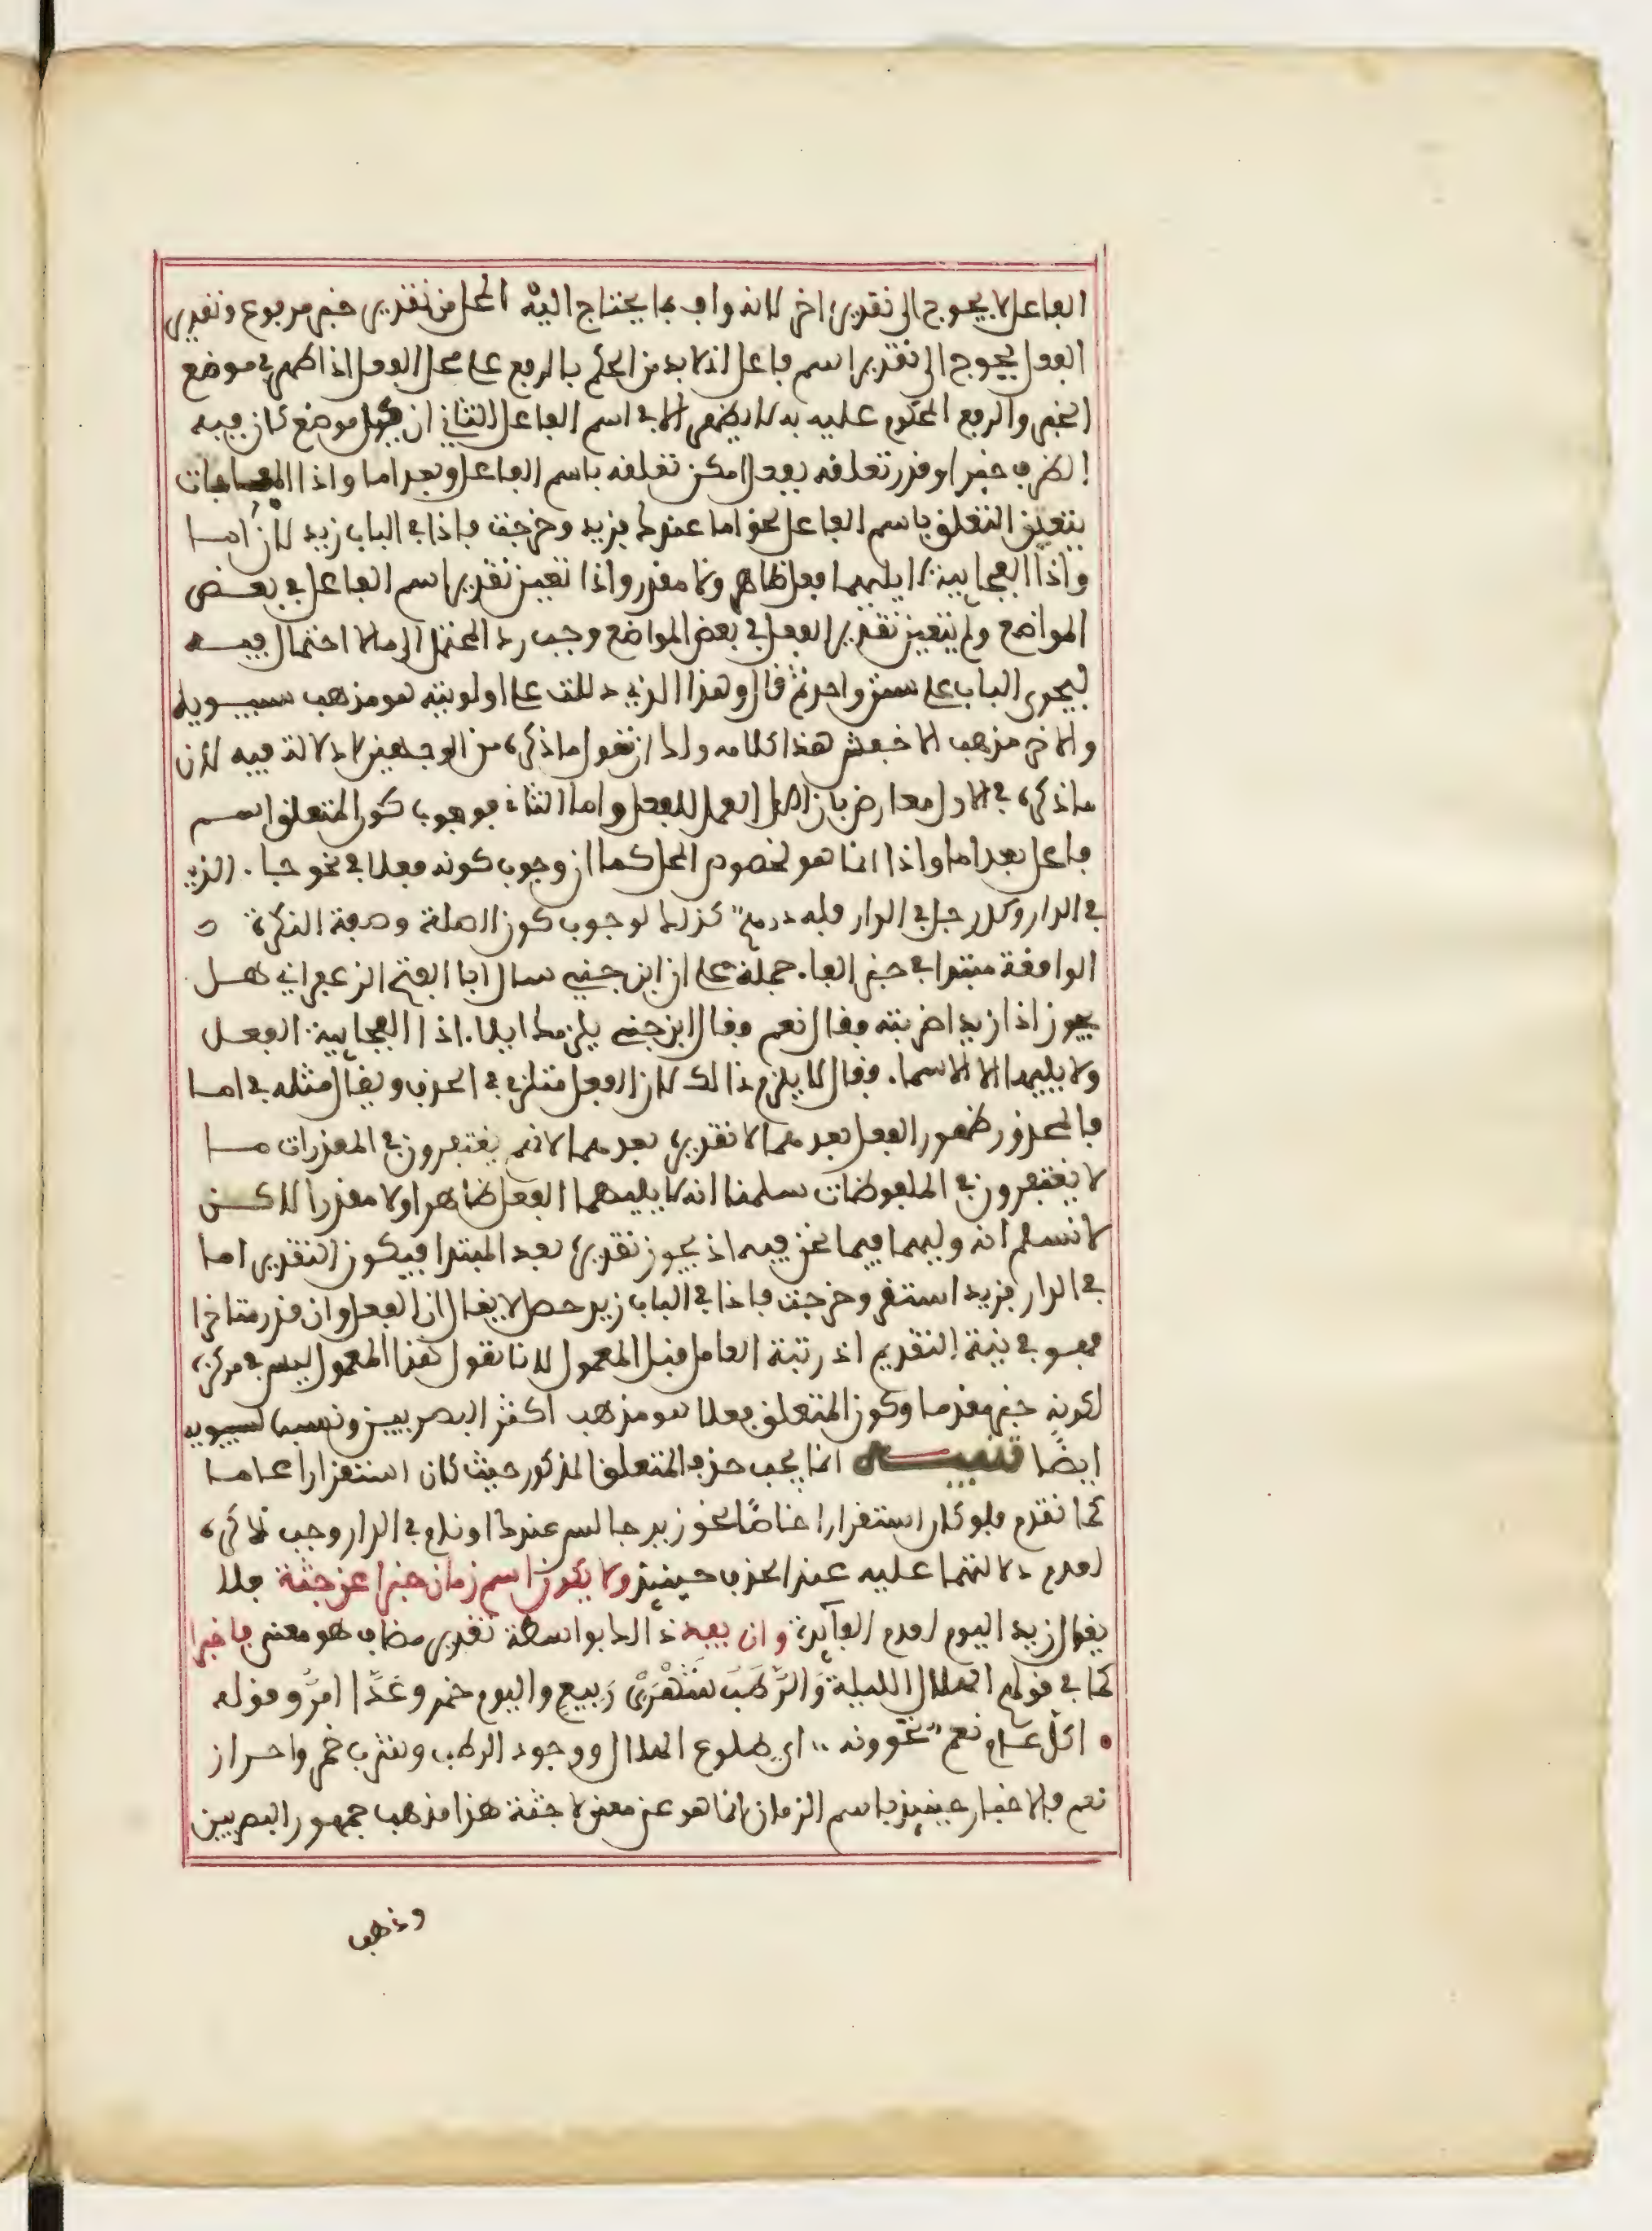 الفاعل لا يحوج الى تقدير اخر لانه واف بما يحتاج اليه المحل من تقدير خبر مرفوع وتقدير
الفعل يحوج الى تقدير اسم فاعل اذ لا بد من الحكم بالرفع على محل الفعل اذا ظهر في موضع
الخبر والرفع المحكوم عليه به لا يظهر الا في اسم الفاعل الثاني ان كل موضع كان فيه
الظرف خبرا وقدر تعلقه بفعل امكن تعلقه باسم الفاعل وبعد اما واذا المفاجات
يتعين التعلق باسم الفاعل نحو اما عندك فزيد وخرجت فاذا في الباب زيد لأن أما
واذا الفجاءية لا يليهما فعل ظاهر ولا مقدر واذا تعين تقدير اسم الفاعل في بعض
المواضع ولم يتعين تقدير الفعل في بعض المواضع وجب رد المحتمل الى ما لا احتمال فيه
ليجرى الباب على سنن واحد ثم قال وهذا الذي دللت على اولويته هو مذهب سيبويه
والاخر مذهب الاخفش هذا كلامه ولك ان تقول ما ذكره من الوجهين لا دلالة فيه لأن
ما ذكره في الاول معارض بان اصل العمل للفعل واما الثاني فوجوب كون المتعلق اسم
فاعل بعد اما واذا انما هو لخصوص المحل كما ان وجوب كونه فعلا في نحو جا. الذي
في الدار وكل رجل في الدار فله درهم كذلك لوجوب كون الصلة وصفة النكرة
الواقعة مبتدا في خبر الفا. جملة على ان ابن جني سال ابا الفتح الزعفراني هل
يجوز اذا زيدا ضربته فقال نعم فقال ابن جني يلزمك ايلا. اذا الفجاءية الفعل
ولا يليها الا الاسما. فقال لا يلزم ذالك لان الفعل ملتزم الحذف ويقال مثله في اما
فالمحذور ظهور الفعل بعدهما لا تقديره بعدهما لانهم يغتفرون في المقدرات ما
لا يغتفرون في الملفوظات سلمنا انه لا يليهما الفعل ظاهرا ولا مقدرا لاكن
لا نسلم انه وليهما فيما نحن فيه اذ يجوز تقديره بعد المبتدا فيكون التقدير اما
في الدار فزيد استقر وخرجت فاذا في الباب زيد حصل لا يقال ان الفعل وان قدر متاخرا
فهو في نية التقديم اذ رتبة العامل قبل المعمول لانا نقول هذا المعمول ليس في مركزه
لكونه خبرا مقدما وكون المتعلق فعلا هو مذهب اكثر البصريين ونسب لسيبويه
ايضًا تنبيه انما يجب حذف المتعلق المذكور حيث كان استقرارا عاما
كما تقدم فلو كان استقرارا خاصًا نحو زيد جالس عندك او نائم في الدار وجب ذكره
لعدم دلالتهما عليه عند الحذف حينئذ ولا يكون اسم زمان خبرا عن جثة فلا
يقال زيد اليوم لعدم الفائدة وان يفد ذالك بواسطة تقدير مضاف هو معنى فاخبرا
كما في قولهم الهلال الليلة وَالرُّطَبَ شَهْرَىْ رَبِيعٍ واليوم خمر وغَدًا امرٌ وقوله
اكلّ عام نعم تحوونه اي طلوع الهلال ووجود الرطب وشرب خمر واحراز
نعم فالاخبار حينئذ باسم الزمان انما هو عن معنى لا جثة هذا مذهب جمهور البصريين
وذهب